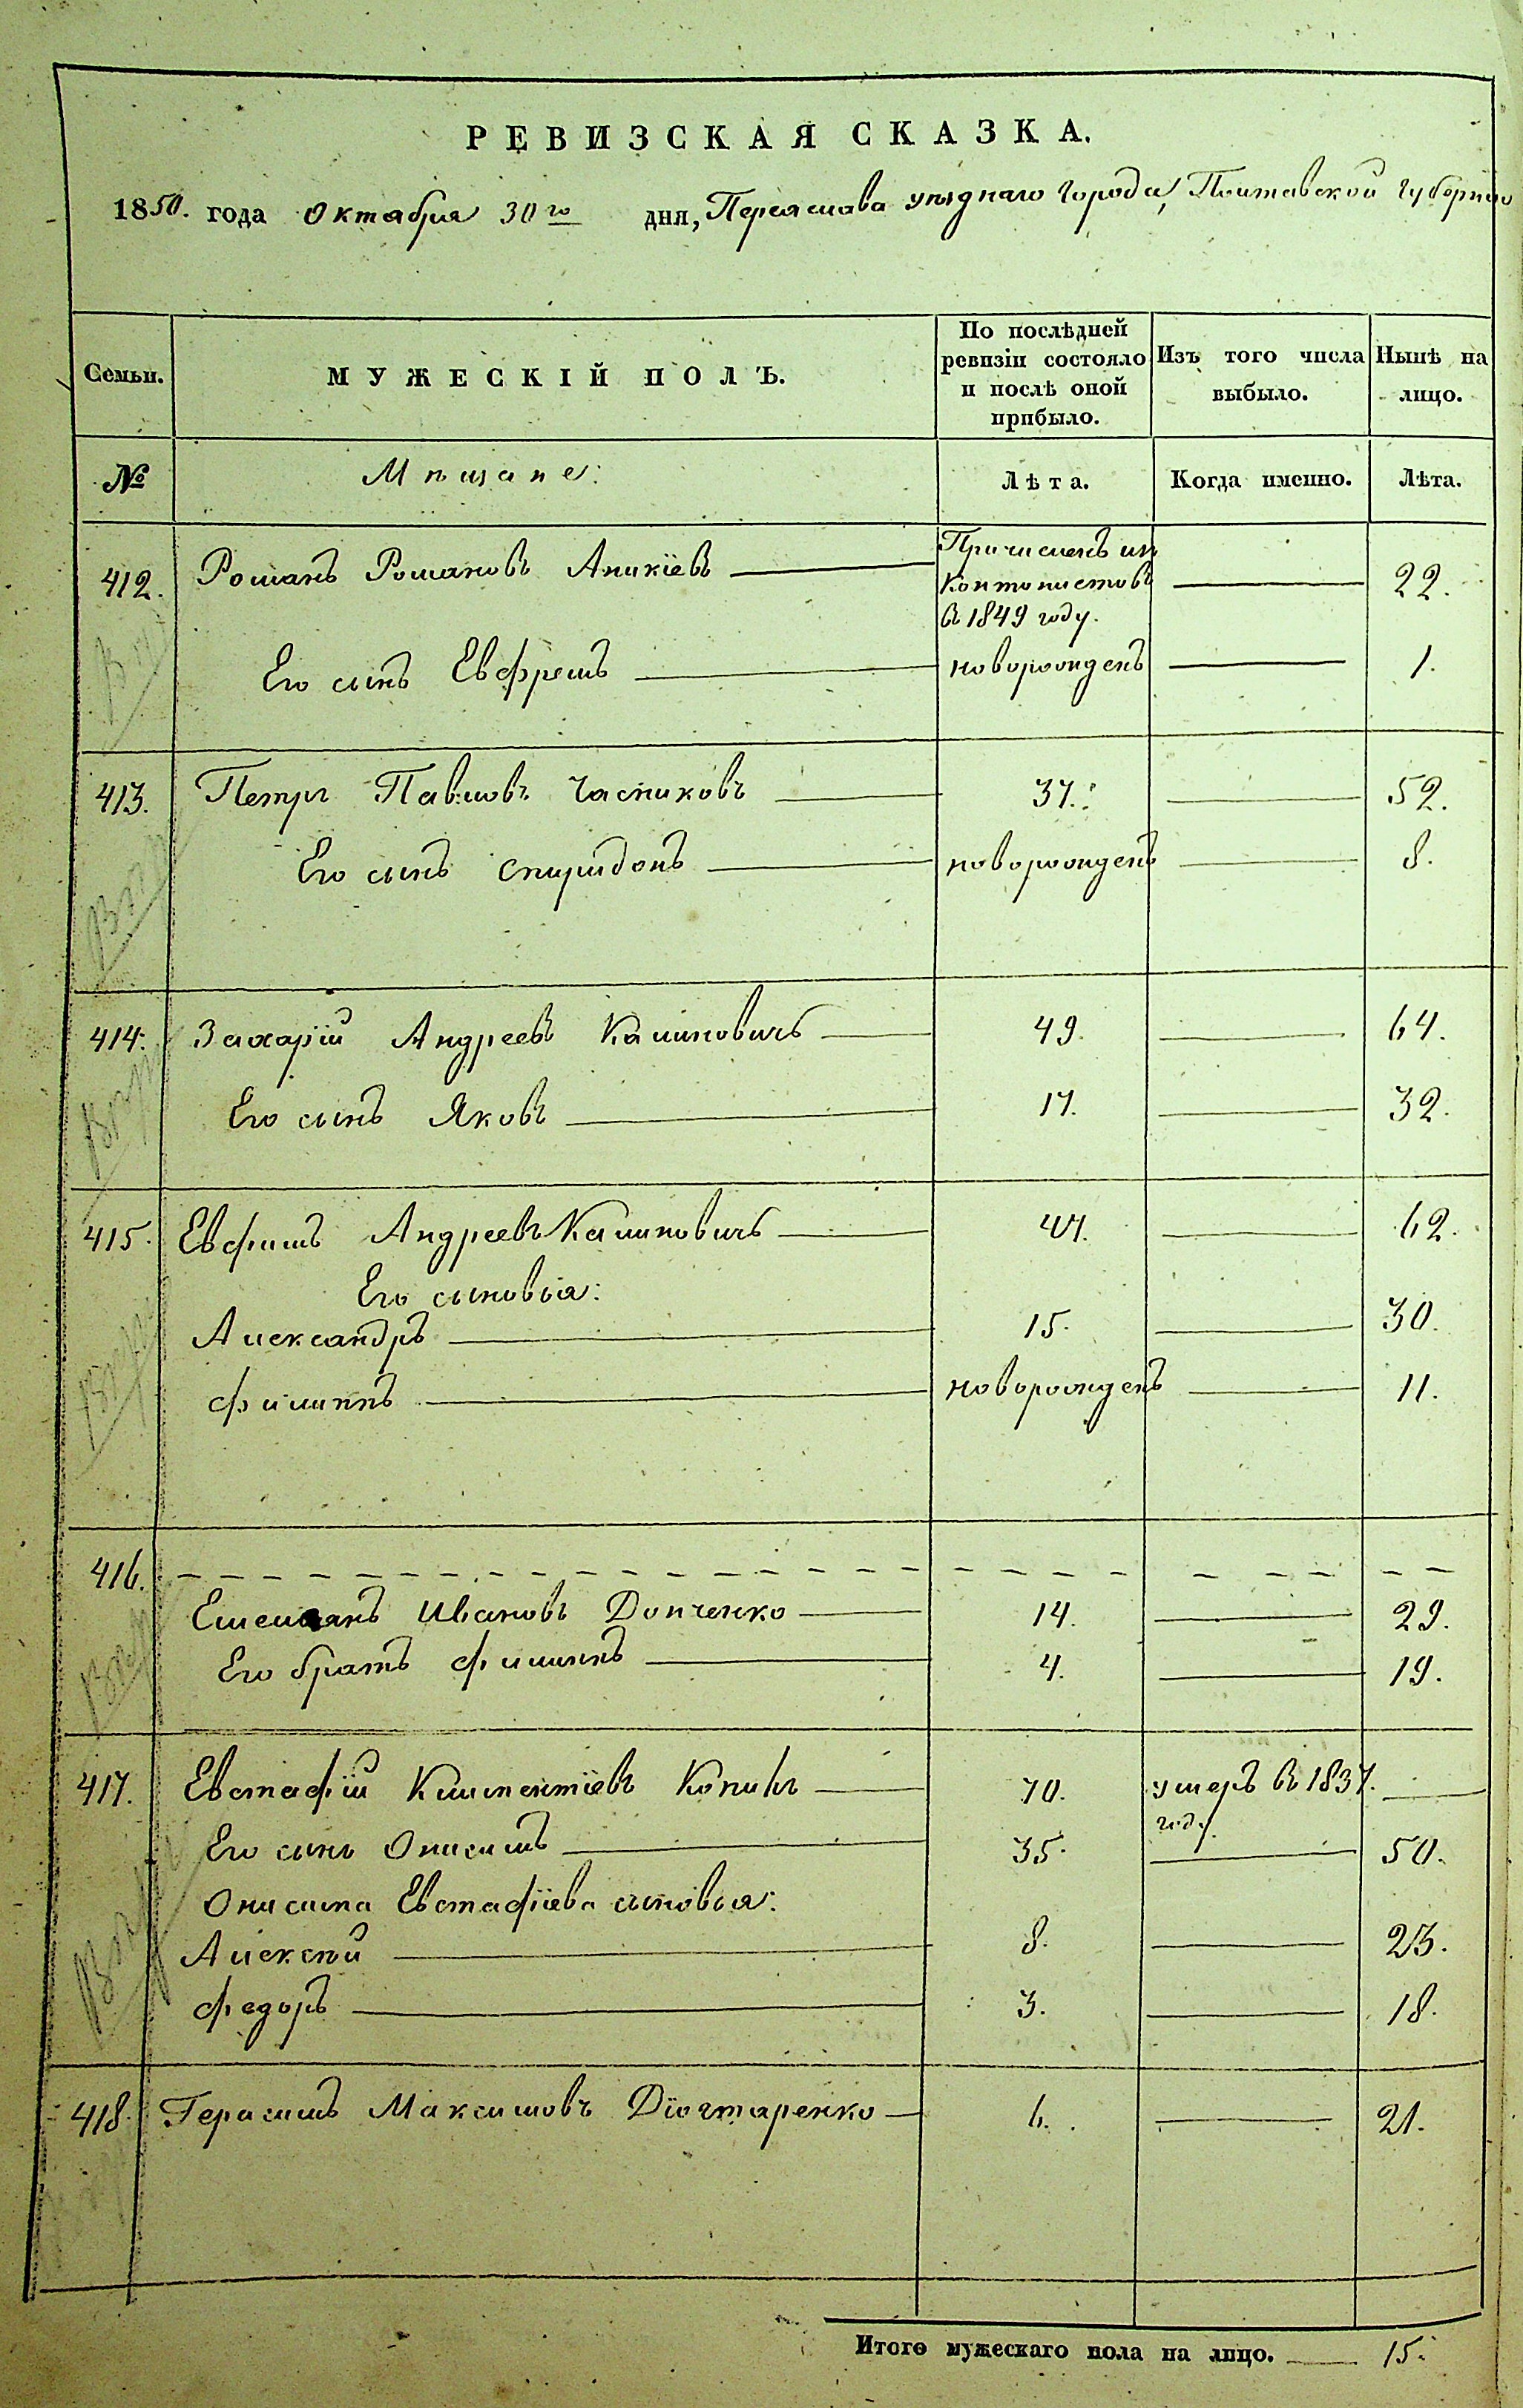 РЕВИЗСКАЯ СКАЗКА.
1850. года Октября 30го дня, Переяслава уѣзднаго города, Полтавской губерніи
Семьи. МУЖЕСКІЙ ПОЛЪ. По послѣдней ревизіи состояло и послѣ оной прибыло. Изъ того числа выбыло. Нынѣ на лицо.
№ Мѣщане: Лѣта. Когда именно. Лѣта.
412. Романъ Романовъ Аникіевъ Причисленъ изъ Контонистовъ въ 1849 году. 22.
Его сынъ Евфремъ новорожденъ 1.
413. Петръ Павловъ Часниковъ 37. 52.
Его сынъ Спиридонъ новорожденъ 8.
414. Захарій Андреевъ Калиновичъ 49. 64.
Его сынъ Яковъ 17. 32.
415. Евфимъ Андреевъ Калиновичъ 47. 62.
Его сыновья:
Александръ 15. 30.
Филиппъ новорожденъ 11.
416.
Емельянъ Ивановъ Донченко 14. 29.
Его братъ Филиппъ 4. 19.
417. Евстафій Климентіевъ 70. умеръ въ 1837. году.
Его сынъ Онисимъ 35. 50.
Онисима Евстафіева сыновья:
Алексѣй 8. 23.
Федоръ 3. 18.
418. Герасимъ Максимовъ Діогтаренко 6. 21.
Итого мужескаго пола на лицо. 15.